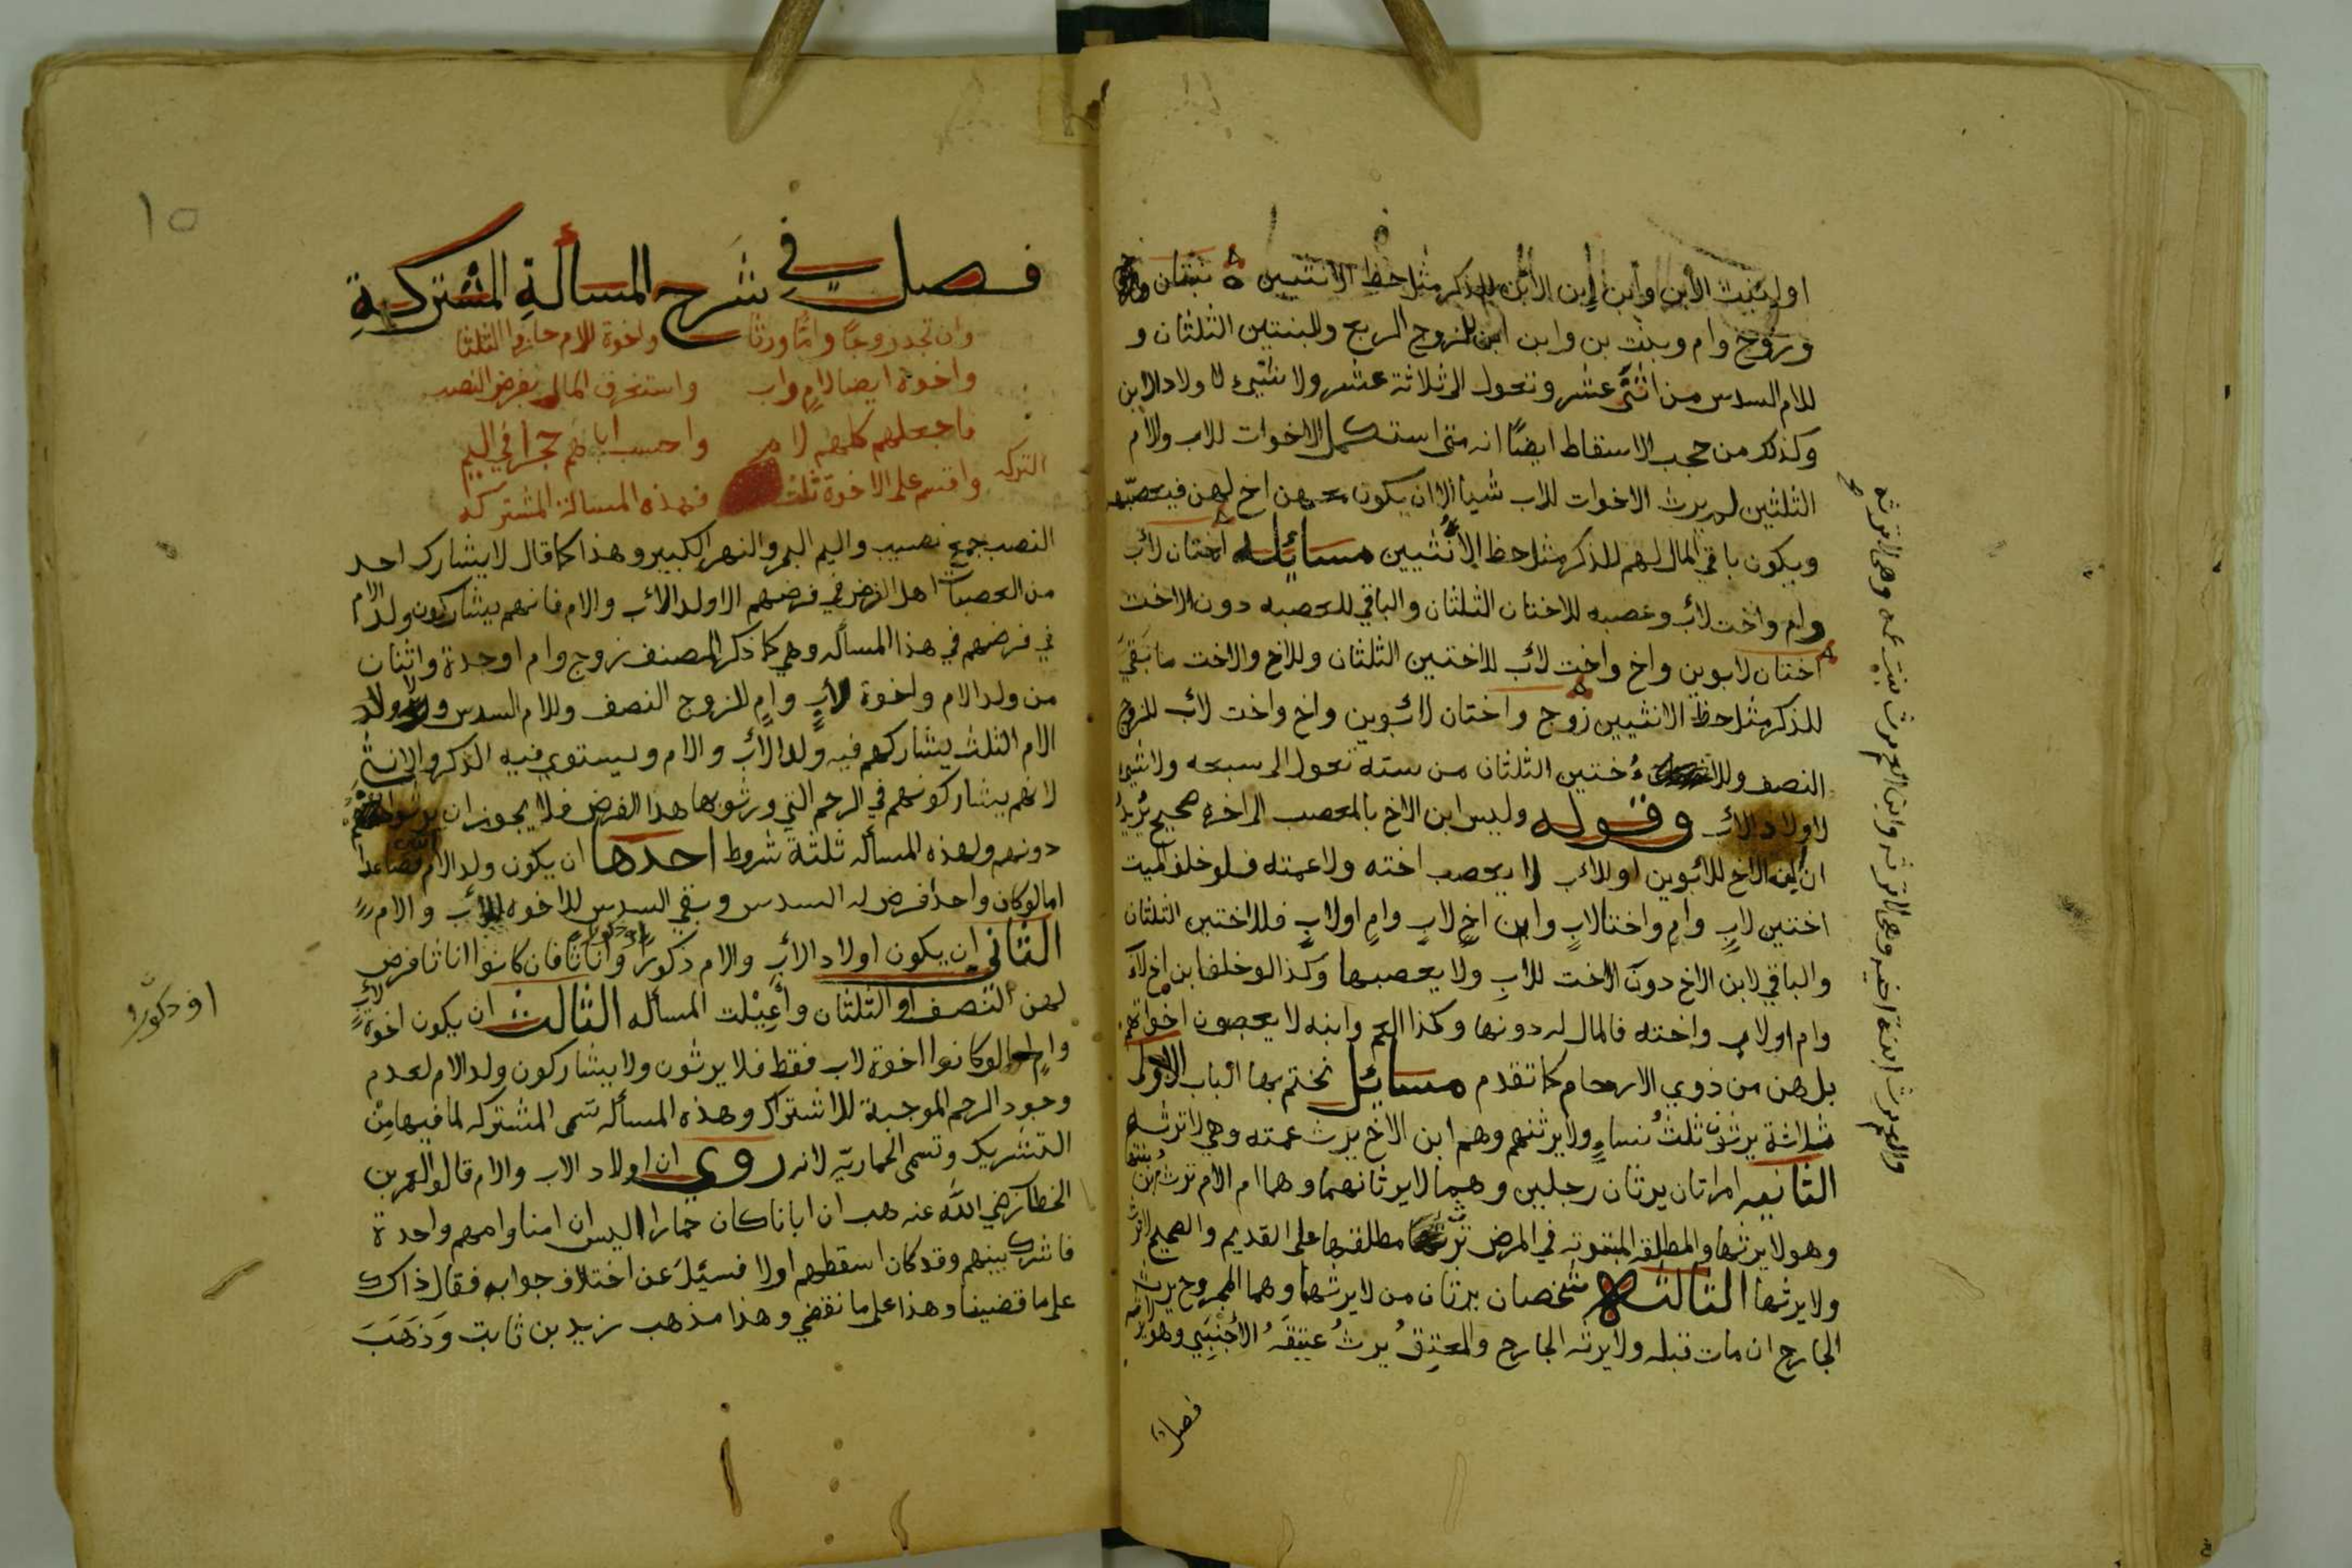 او لبنت الابن وابن ابن الابن للذكر مثل حظ الانثيين بنتان
وزوج وام وبنت بن وابن ابن للزوج الربع وللبنتين الثلثان و
للام السدس من اثنى عشر وتعول الى ثلاثة عشر ولا شيء لاولاد الابن
وكذلك من حجب الاسقاط ايضًا انه متى استكمل الاخوات للاب والام
الثلثين لم يرث الاخوات للاب شيا الا ان يكون معهن اخ لهن فيعصبهن
ويكون باقي المال لهم للذكر مثل حظ الأنثيين مسايله اختان لأب
وام واخت لأب وعصبه للاختان الثلثان والباقي للعصبه دون الاخت
اختان لابوين واخ واخت لأب للاختين الثلثان وللاخ والاخت ما بقي
للذكر مثل حظ الانثيين زوج واختان لابوين واخ واخت لأب للزوج
النصف وللاختين الثلثان من سته تعول الى سبعه ولا شيء
لاولاد الأب وقوله وليس ابن الاخ بالمعصب الى اخره صحيح يريد
ان ابن الاخ للأبوين او للأب لا يعصب اخته ولا عمته فلو خلف الميت
اختين لابٍ وامٍ واختا لابٍ وابن اخٍ لابٍ وامٍ او لابٍ فللاختين الثلثان
والباقي لابن الاخ دون الاخت للاب ولا يعصبها وكذا لو خلف ابن اخ لاب
وام او لاب واخته فالمال له دونها وكذا العم وابنه لا يعصبون اخواتهم
بل هن من ذوي الارحام كما تقدم مسائل نختم بها الباب الاول
ثلاثة يرثون ثلث نساءٍ ولا يرثنهم وهم ابن الاخ يرث عمته وهي لا ترثه
والعم يرث ابنة اخيه وهي لا ترثه وابن العم يرث بنت عمه وهي لا ترثه
الثانيه امراتان يرثان رجلين وهما لا يرثانهما وهما ام الام ترث بن بنتها
وهو لا يرثها والمطلقه المبتوته في المرض ترث مطلقها على القديم والصحيح لا ترث
ولا يرثها الثالثه شخصان يرثان من لا يرثهما وهما المجروح يرث
الجارح ان مات قبله ولا يرثه الجارح والمعتِق يرث عتيقه الأجنبي وهو لا يرثه
فصل
١٥
فصل في شرح المسألة المشتركة
وان تجد زوجًا وامًّا ورثا واخوة للام حازوا الثلثا
واخوة ايضا لامٍ واب واستغرق المال بفرض النصب
فاجعلهم كلهم لام واحسب اباهم حجرا في اليم
واقسم على الاخوة ثلث التركه فهذه المسالة المشتركه
النصب جمع نصيب واليم البحر والنهر الكبير وهذا كما قال لا يشارك احد
من العصبات اهل الفرض في فرضهم الا ولد الأب والام فانهم يشاركون ولد الام
في فرضهم في هذا المسأله وهي كما ذكر المصنف زوج وام او جدة واثنان
من ولد الام واخوة لأبٍ وامٍ للزوج النصف وللام السدس ولاولاد
الام الثلث يشاركهم فيه ولد الأب والام ويستوي فيه الذكر والانثى
لانهم يشاركونهم في الرحم التي ورثوا بها هذا الفرض فلا يجوز ان يرثوا
دونهم ولهذه المسأله ثلثة شروط احدها ان يكون ولد الام اثنين فصاعدا
اما لو كان واحدًا فرض له السدس وبقي السدس للاخوه للأب والام
الثاني ان يكون اولاد الأبِ والام ذكورًا او ذكورًا واناثًا فان كانوا اناثا فرض
لهن النصف او الثلثان وأعيلت المسأله الثالث ان يكون اخوة لأبٍ
وامٍ اما لو كانوا اخوة لاب فقط فلا يرثون ولا يشاركون ولد الام لعدم
وجود الرحم الموجبة للاشتراك وهذه المسأله تسمى المشتركه لما فيها من
التشريك وتسمى الحماريّه لانه روي ان اولاد الاب والام قالوا لعمر بن
الخطاب رضي الله عنه هب ان ابانا كان حمارا اليس ان امنا وامهم واحدة
فاشرك بينهم وقد كان اسقطهم اولا فسئل عن اختلاف جوابه فقال ذاك
على ما قضينا وهذا على ما نقضي وهذا مذهب زيد بن ثابت وَذَهَبَ
او ذكورًا